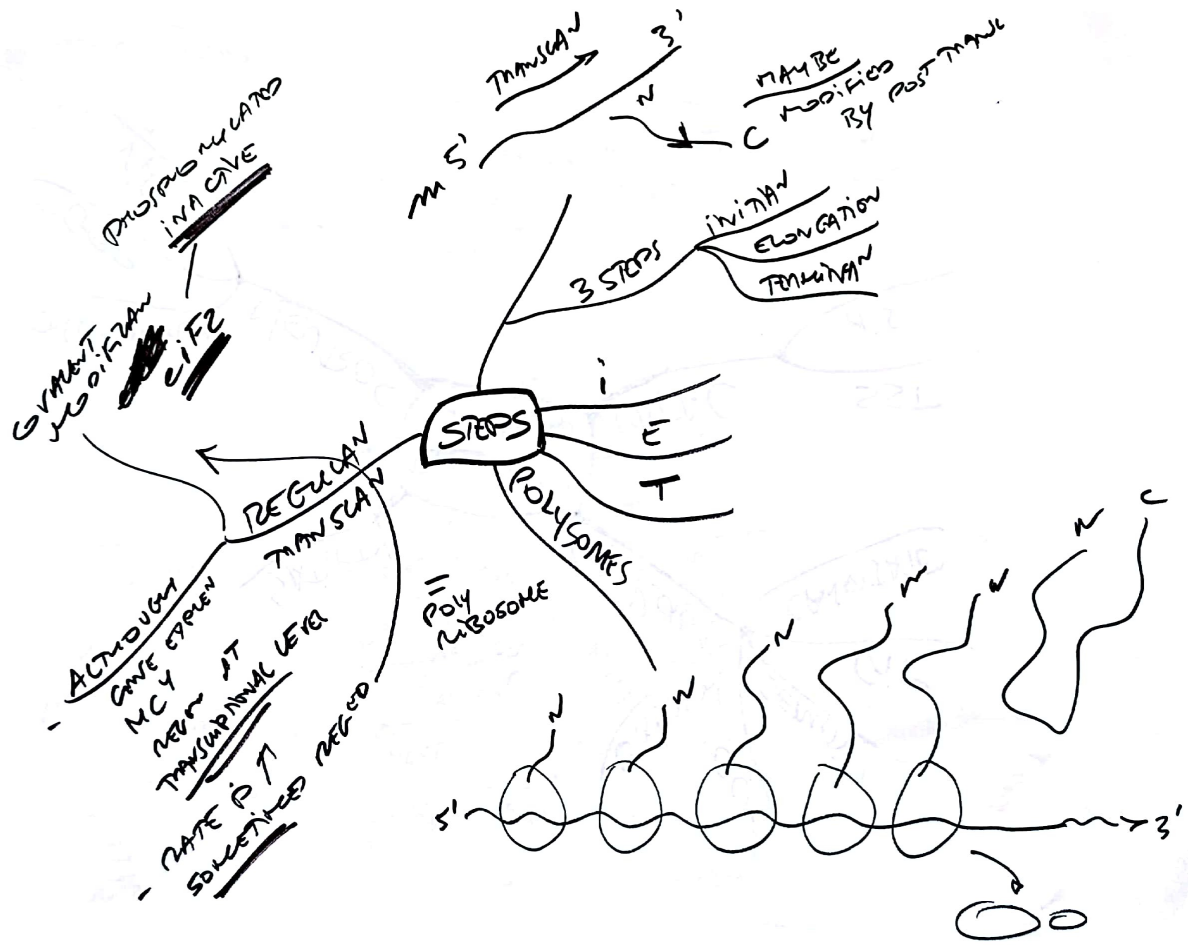 TRANSLAN
3'
5'
m
N
C
MAY BE
MODIFIED
BY POST TRANL
3 STEPS
INITIAN
ELONGATION
TERMINAN
STEPS
i
E
T
POLYSOMES
=
POLY
RIBOSOME
REGULAN
TRANSLAN
COVALENT
MODIFIZAN
eiF2
PHOSPHORYLATED
INACTIVE
- ALTHOUGH
GENE EXPREN
MCY
REGN AT
TRANSCRIPTIONAL LEVEL
- RATE P ↑
SOMETIMES REGED
N
N
N
N
N
N
C
5'
3'